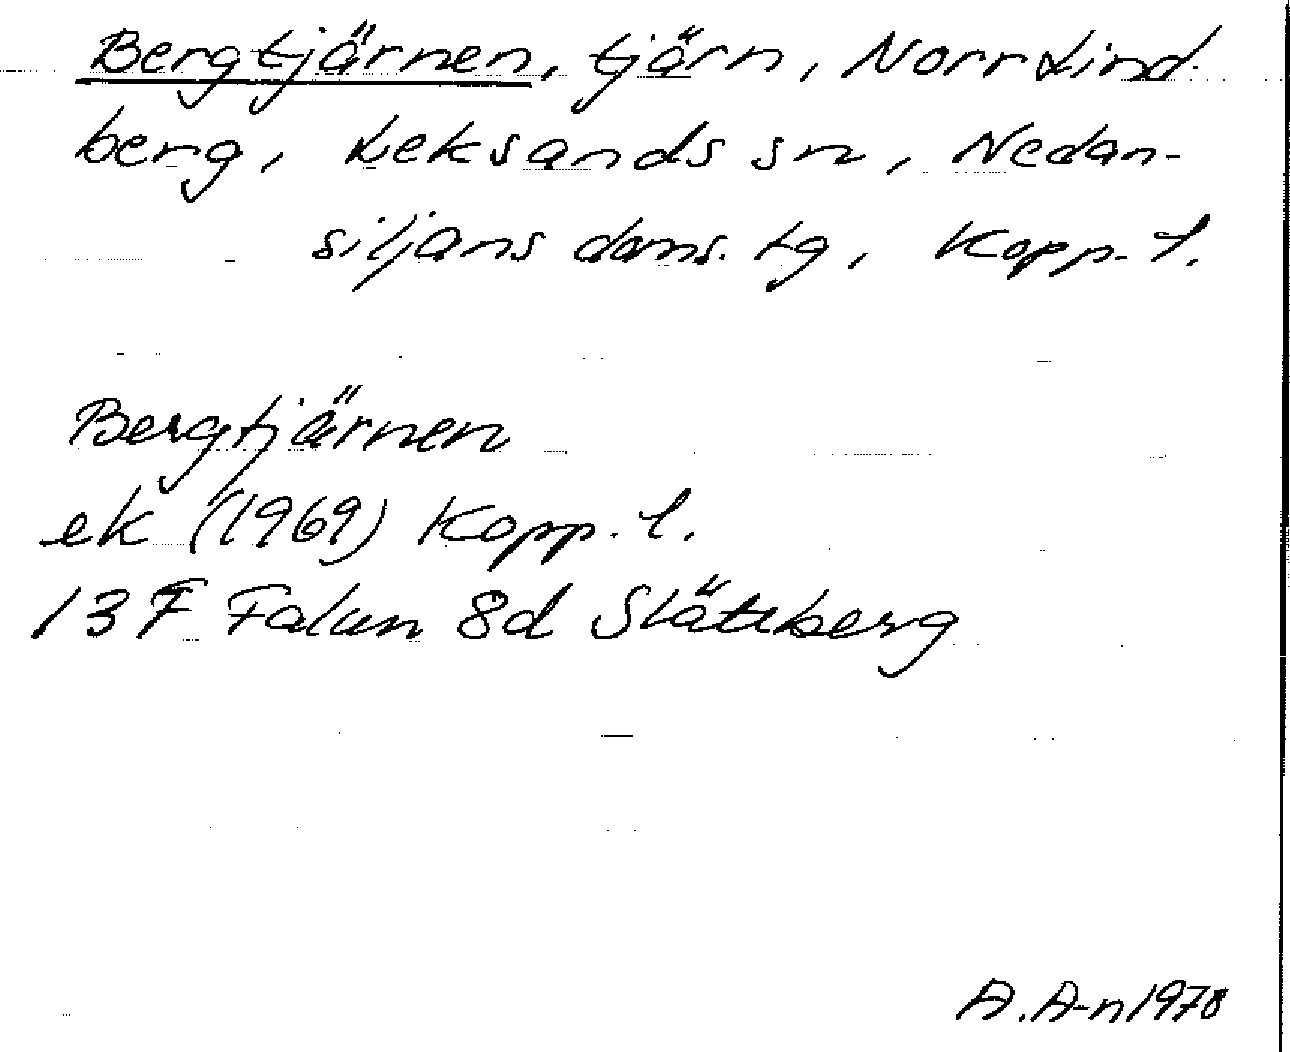 Bergtjärnen, tjärn, Norr Lind-
berg, Leksands sn, Nedan-
siljans doms. tg, Kopp. l.
Bergtjärnen
ek (1969) Kopp. l.
13 F Falun 8d Slättberg
A. A-n 1978